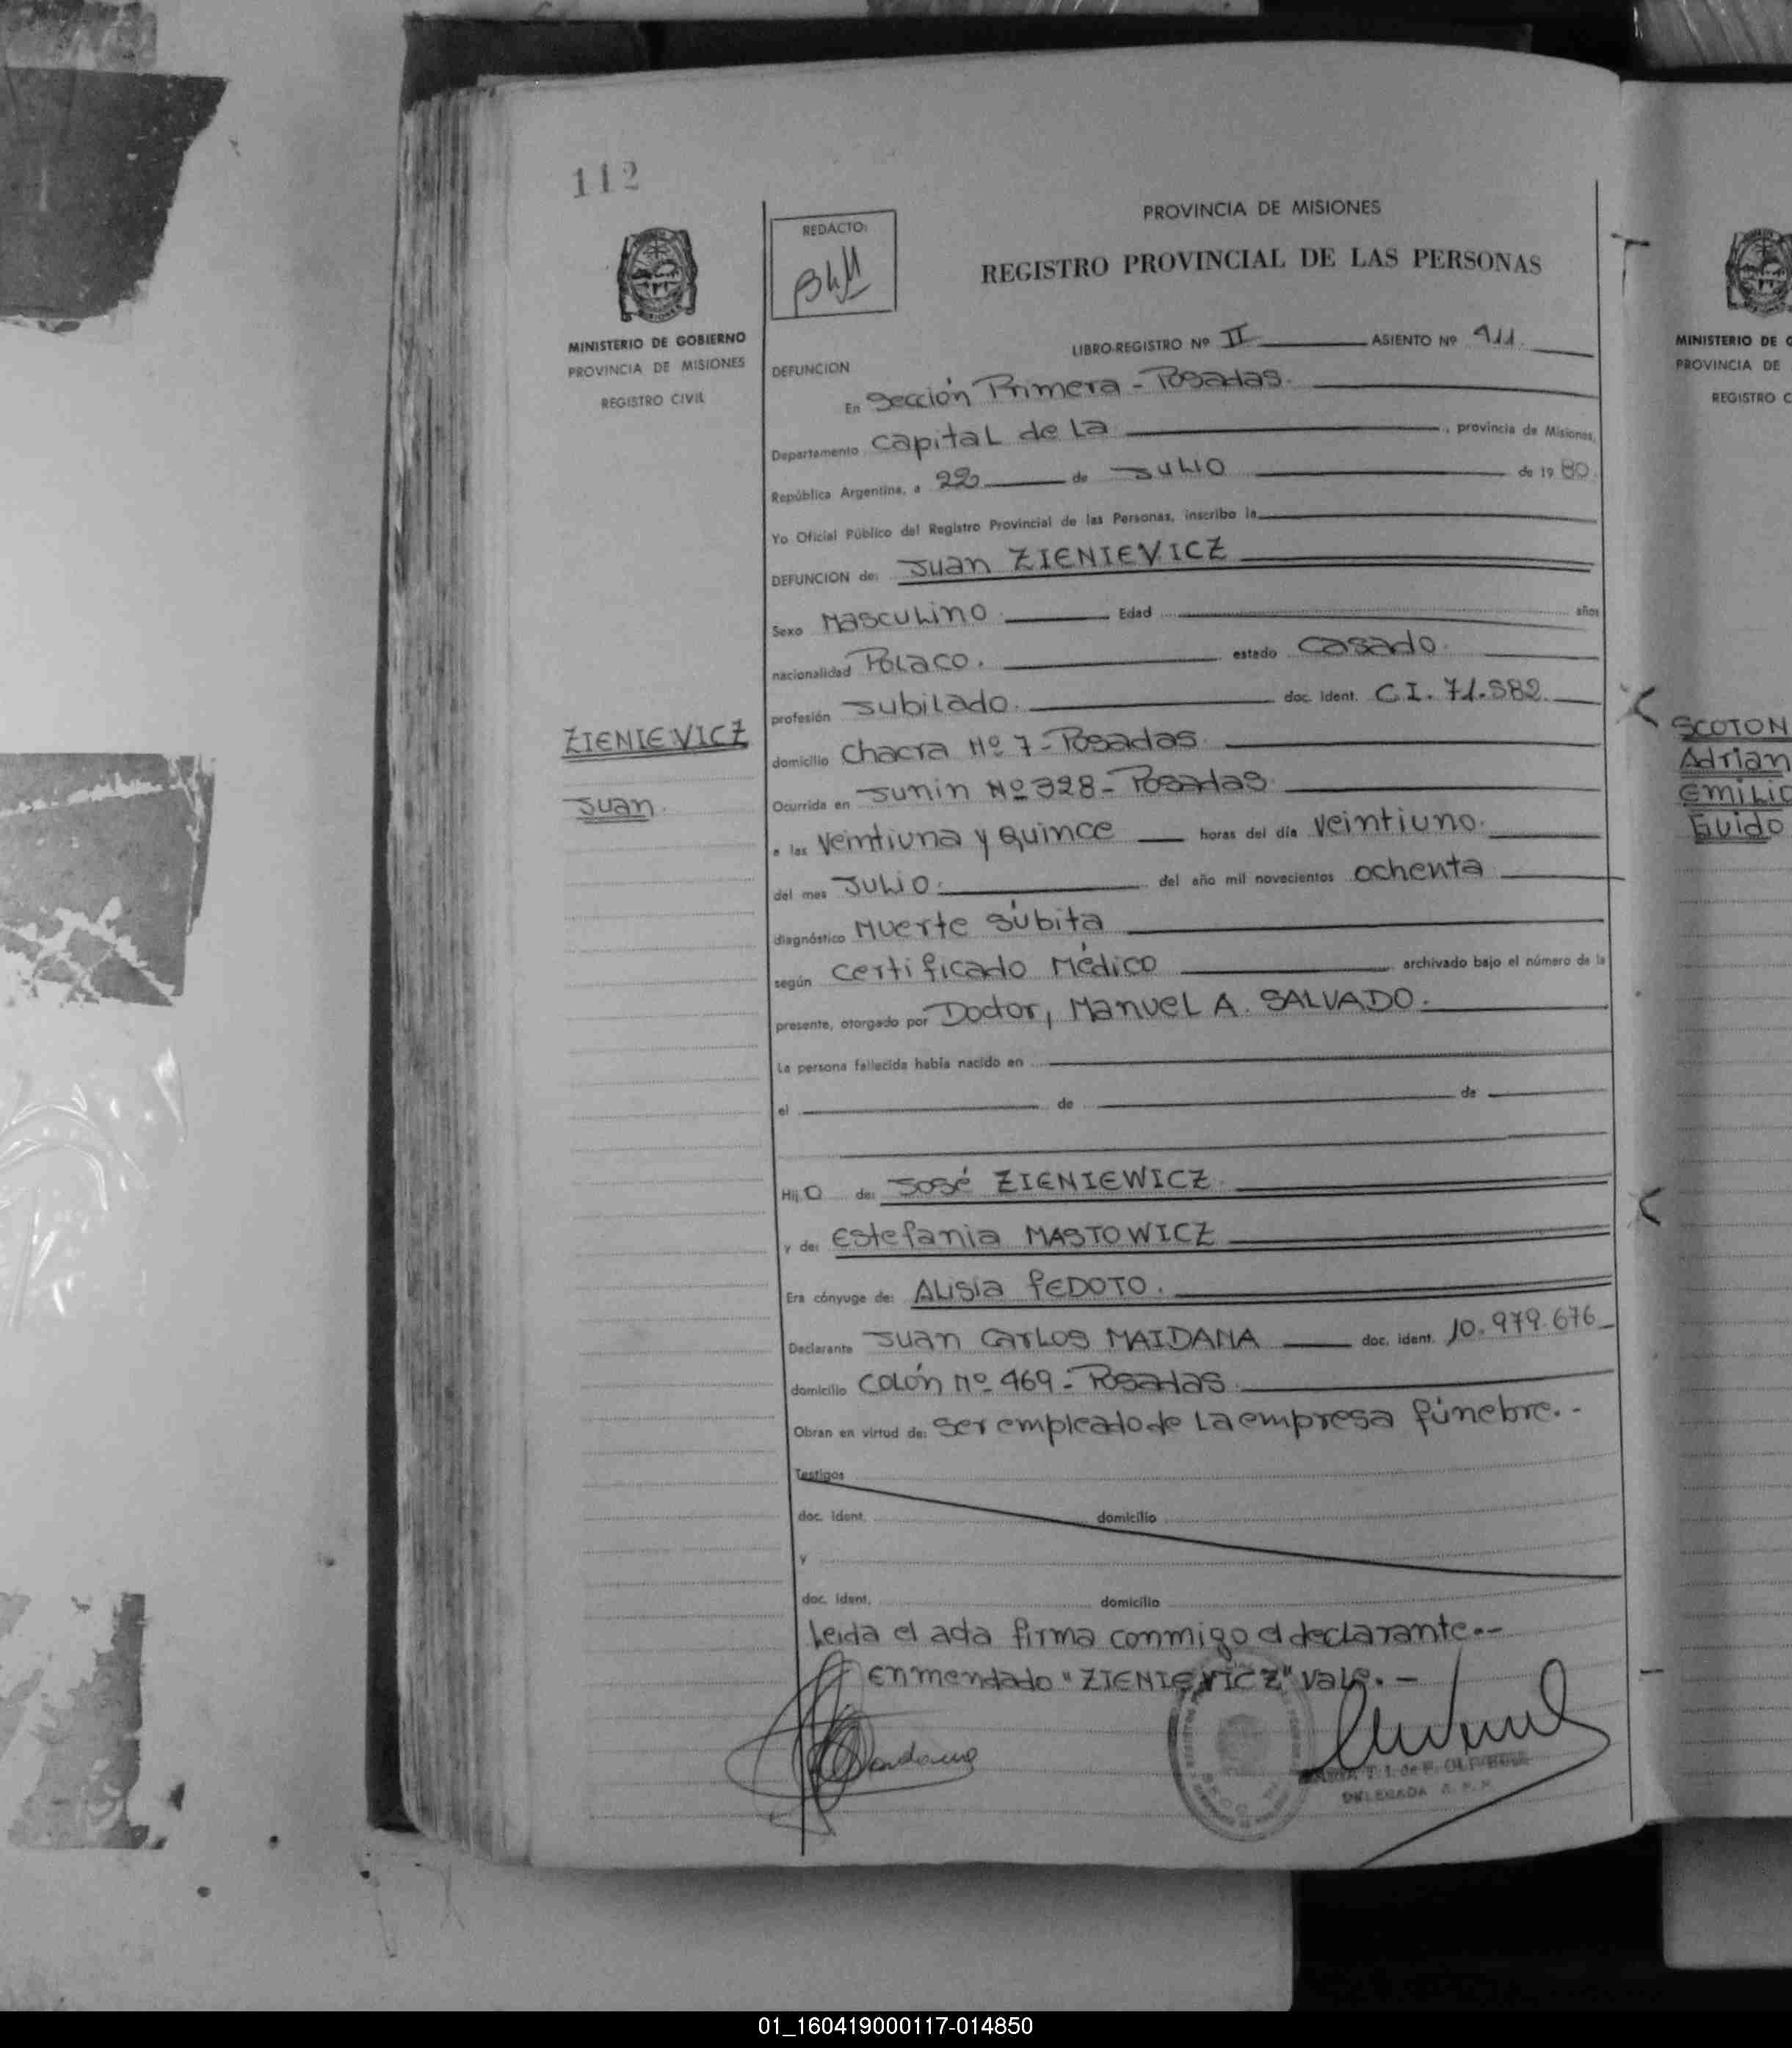 112
PROVINCIA DE MISIONES
REGISTRO PROVINCIAL DE LAS PERSONAS
REDACTO:
MINISTERIO DE GOBIERNO
PROVINCIA DE MISIONES
REGISTRO CIVIL
LIBRO-REGISTRO Nº II ASIENTO Nº 411.
DEFUNCION
En Sección Primera - Posadas.
Departamento Capital de La, provincia de Misiones,
República Argentina, a 22 de Julio de 1980.
Yo Oficial Público del Registro Provincial de las Personas, inscribo la
DEFUNCION de: Juan ZIENIEVICZ
Sexo Masculino. Edad años
nacionalidad Polaco. estado casado.
profesión Jubilado. doc. ident. C.I. 71.582.
domicilio Chacra Nº 7 - Posadas.
Ocurrida en Junin Nº 328 - Posadas.
a las Veintiuna y Quince horas del día Veintiuno.
del mes Julio. del año mil novecientos ochenta
diagnóstico Muerte Súbita
según certificado Médico archivado bajo el número de la
presente, otorgado por Doctor, Manuel A. SALVADO.
La persona fallecida había nacido en
el de de
Hijo de: José ZIENIEWICZ.
y de: Estefania MASTOWICZ
Era cónyuge de: Alisia FEDOTO.
Declarante Juan Carlos MAIDANA doc. ident. 10.979.676
domicilio Colón Nº 469 - Posadas.
Obran en virtud de: Ser empleado de La empresa fúnebre.-
Testigos
doc. ident. domicilio
y
doc. ident. domicilio
Leida el acta firma conmigo el declarante.-
enmendado "ZIENIEVICZ" Vale.-
DELEGADA
ZIENIEVICZ
Juan.
MINISTERIO DE
PROVINCIA DE
REGISTRO
SCOTON
Adrian
Emilio
Guido
01_160419000117-014850